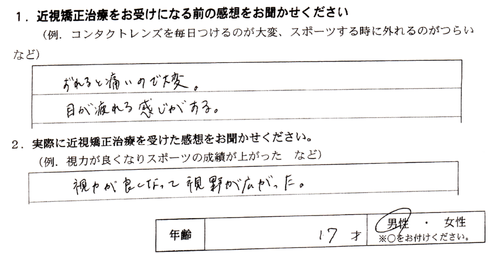 1．近視矯正治療をお受けになる前の感想をお聞かせください
（例．コンタクトレンズを毎日つけるのが大変、スポーツする時に外れるのがつらい
など）
ずれると痛いので大変。
目が疲れる感じがある。
2．実際に近視矯正治療を受けた感想をお聞かせください。
（例．視力が良くなりスポーツの成績が上がった　など）
視力が良くなって視野が広がった。
年齢　17才　男性　・　女性
※○をお付けください。